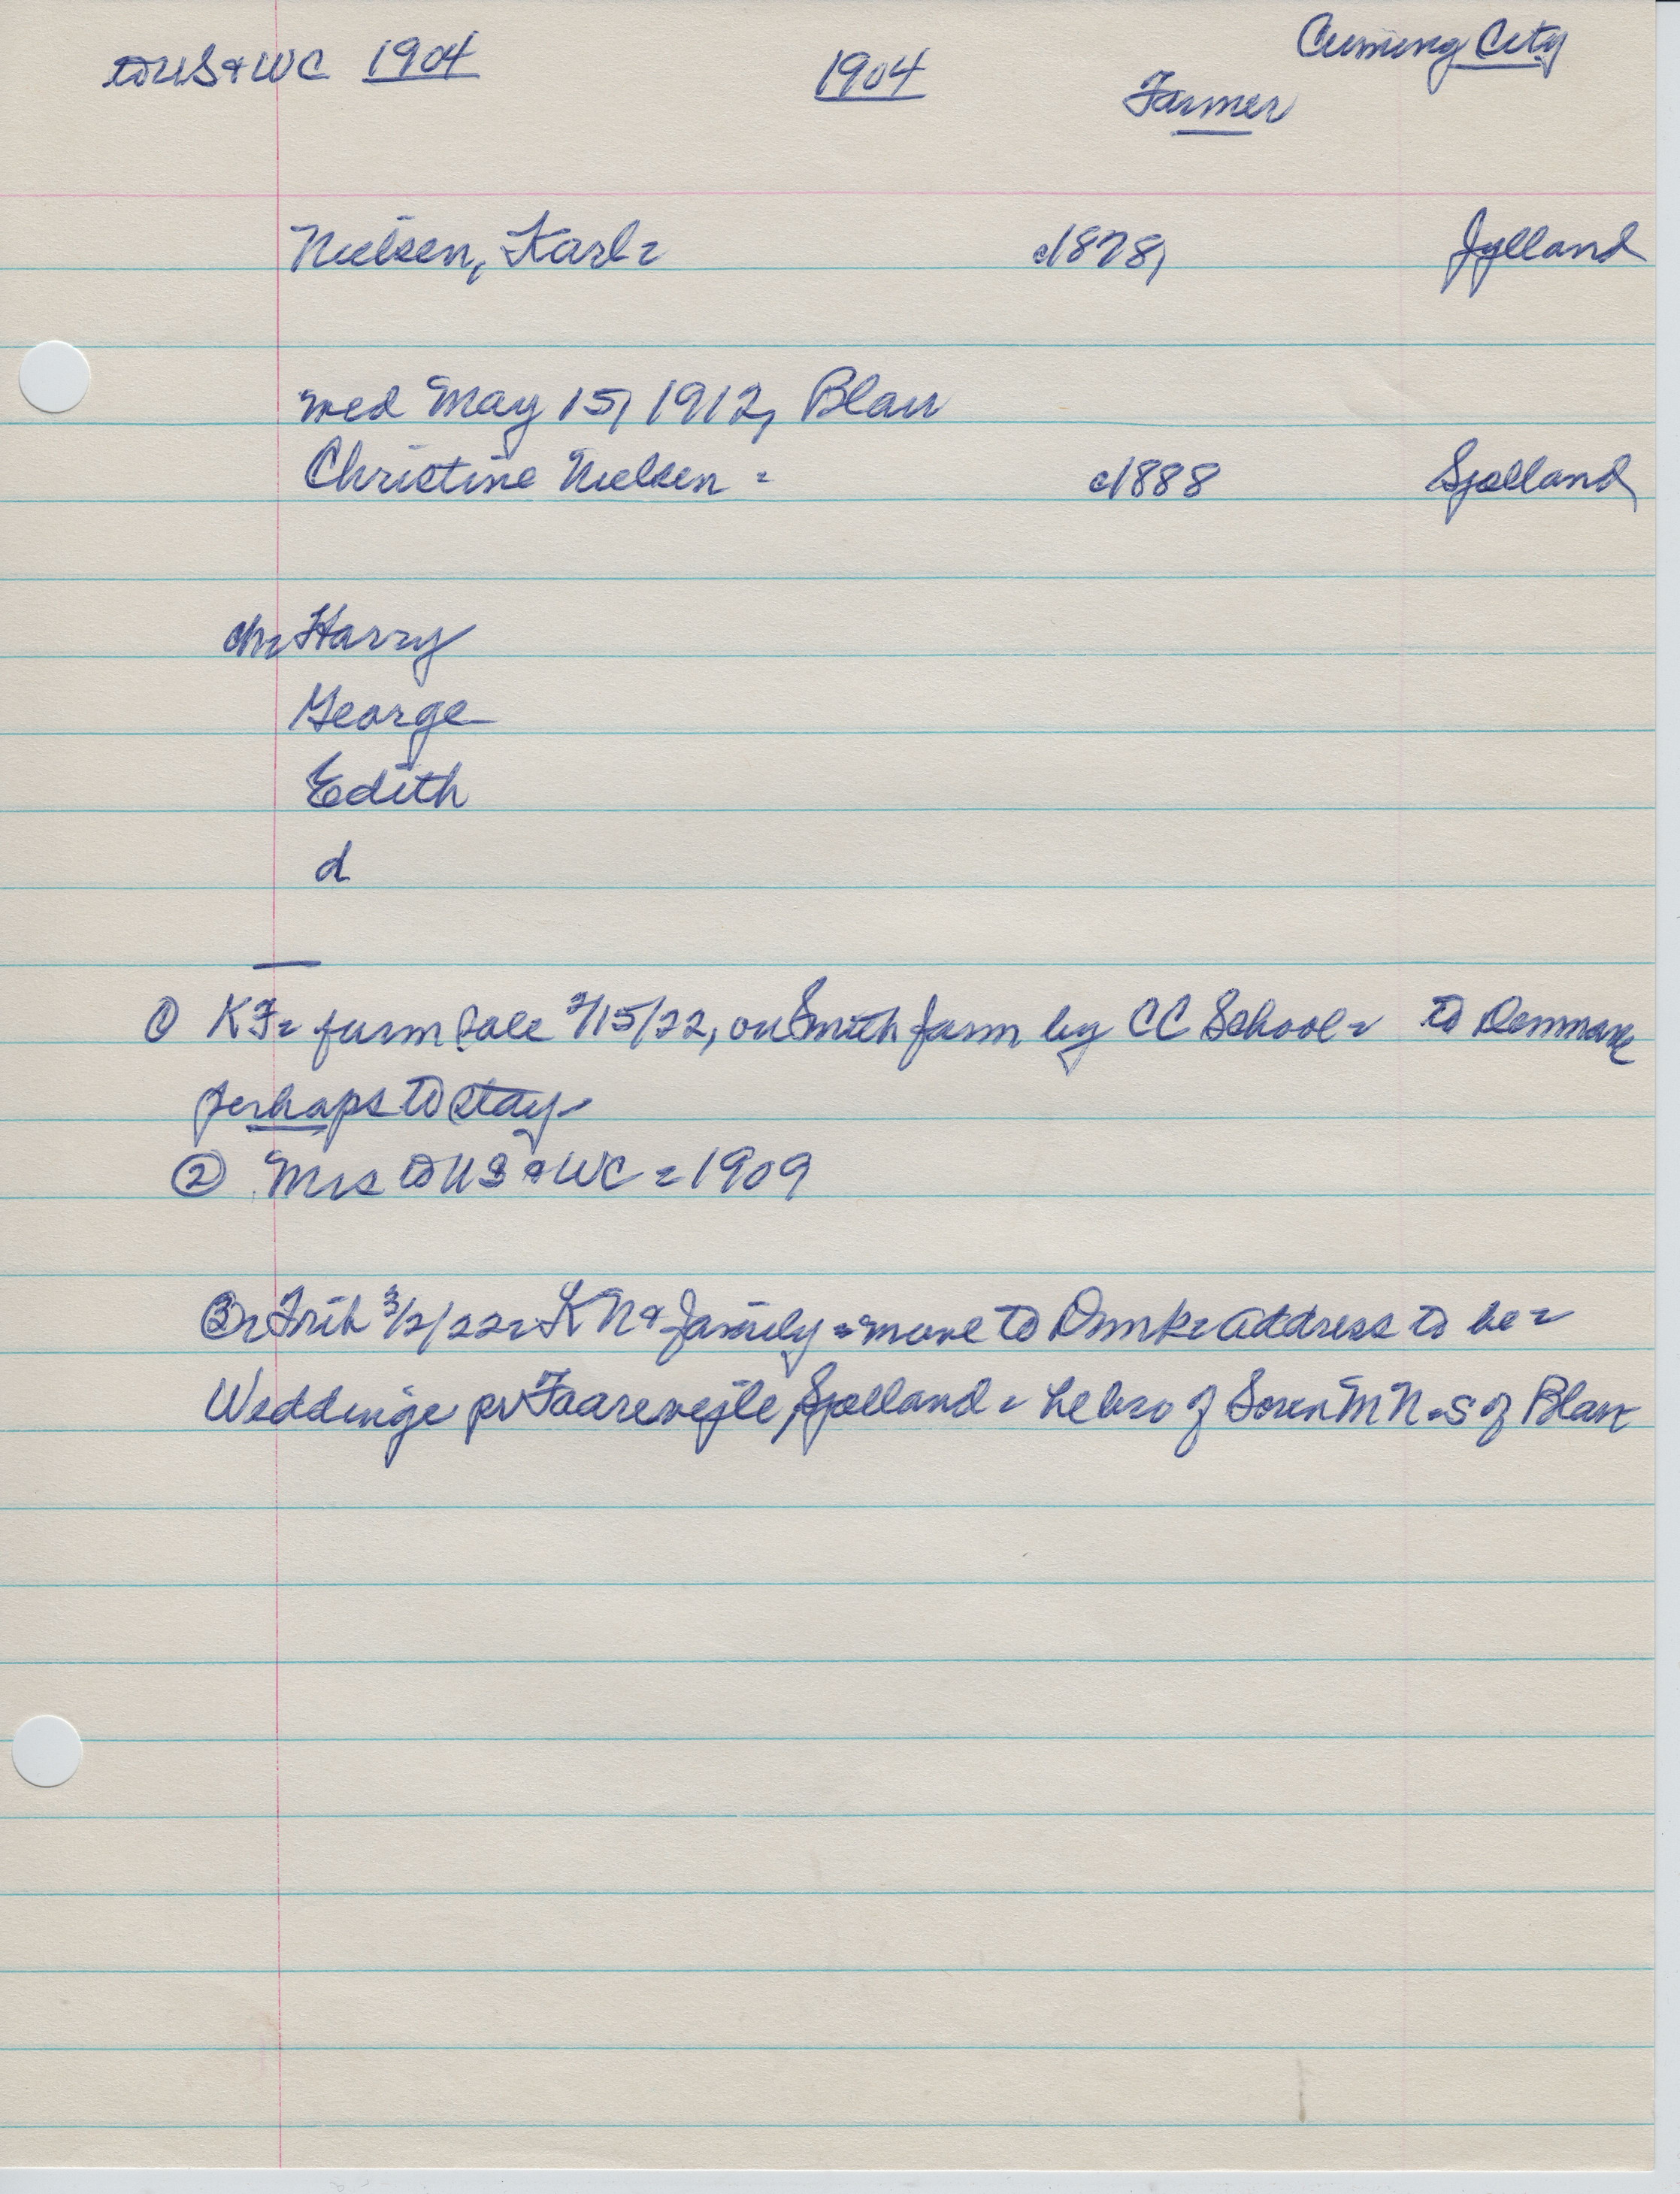 to US & WC 1904 1904 Cuming City
Farmer
Nielsen, Karl = c1878, Jylland
wed May 15, 1912, Blair
Christine Nielsen = c1888 Sjælland
ch = Harry
George
Edith
d
① K = farm sale 2/15/22, on Smith farm by CC School = to Denmark
perhaps to stay
② Mrs to US & WC = 1909
③ = Trib 3/2/22 = K N & family = move to Dnmk = address to be =
Weddinge pr Faarevejle, Sjælland = he bro of Soren M N-s of Blair